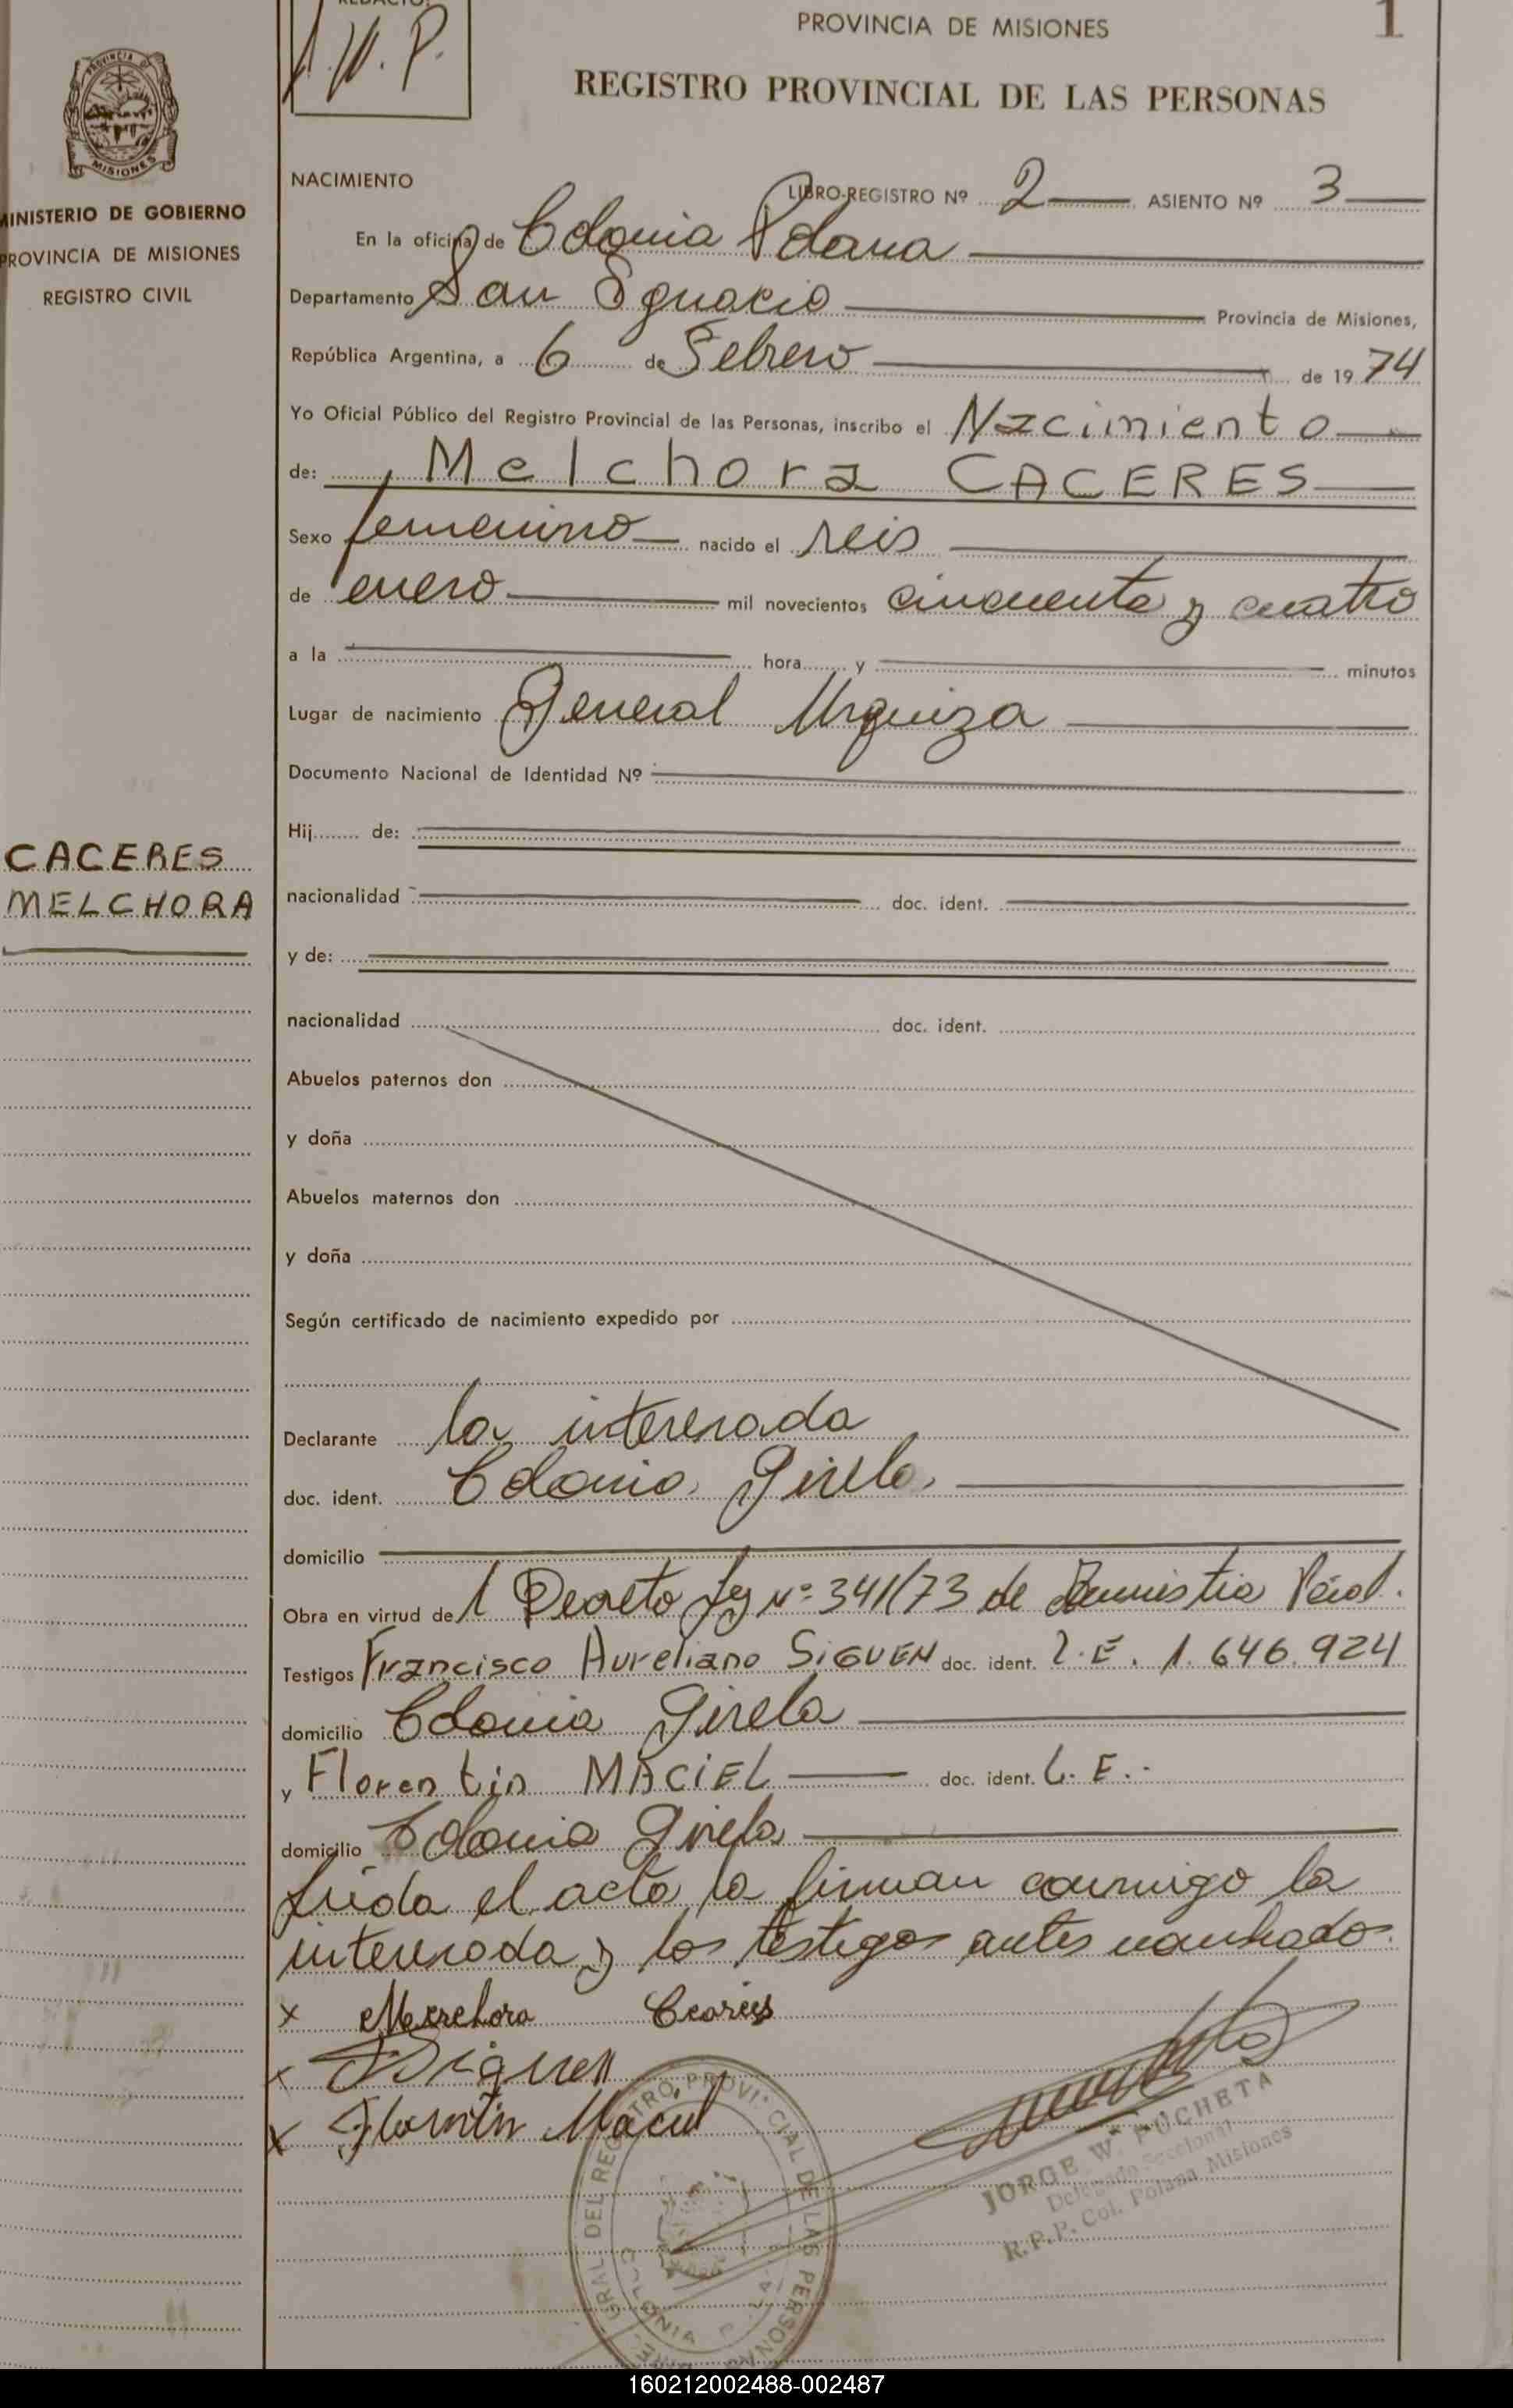 REDACTO:
J. W. P.
PROVINCIA DE MISIONES
1
REGISTRO PROVINCIAL DE LAS PERSONAS
MISIONES
MINISTERIO DE GOBIERNO
PROVINCIA DE MISIONES
REGISTRO CIVIL
NACIMIENTO LIBRO-REGISTRO Nº 2 ASIENTO Nº 3
En la oficina de Colonia Polana
Departamento San Ignacio Provincia de Misiones,
República Argentina, a 6 de Febrero de 1974
Yo Oficial Público del Registro Provincial de las Personas, inscribo el Nacimiento
de: Melchora CACERES
Sexo femenino nacido el seis
de enero mil novecientos cincuenta y cuatro
a la hora y minutos
Lugar de nacimiento General Urquiza
Documento Nacional de Identidad Nº
Hij de:
CACERES
MELCHORA
nacionalidad doc. ident.
y de:
nacionalidad doc. ident.
Abuelos paternos don
y doña
Abuelos maternos don
y doña
Según certificado de nacimiento expedido por
Declarante la interesada
doc. ident. Colonia Gisela
domicilio
Obra en virtud de l Decreto Ley Nº 341/73 de Amnistia
Testigos Francisco Aureliano SIGUEN doc. ident. L.E. 1.646.924
domicilio Colonia Gisela
y Florentin MACIEL doc. ident. L. E.
domicilio Colonia Gisela
Leida el acta la firman conmigo la
interesada y los testigos antes nombrados.
x Melchora
x Siguen
x Florentin Maciel
JORGE W. PUCHETA
Delegado Seccional
R.P.P. Col. Polana Misiones
GRAL. DEL REGISTRO PROVINCIAL DE LAS PERSONAS
COLONIA
160212002488-002487